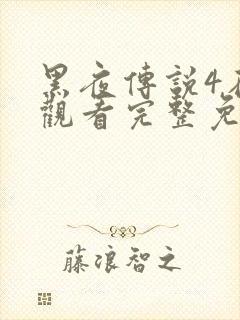 黑夜傳説4
觀看完整免
藤浪智之